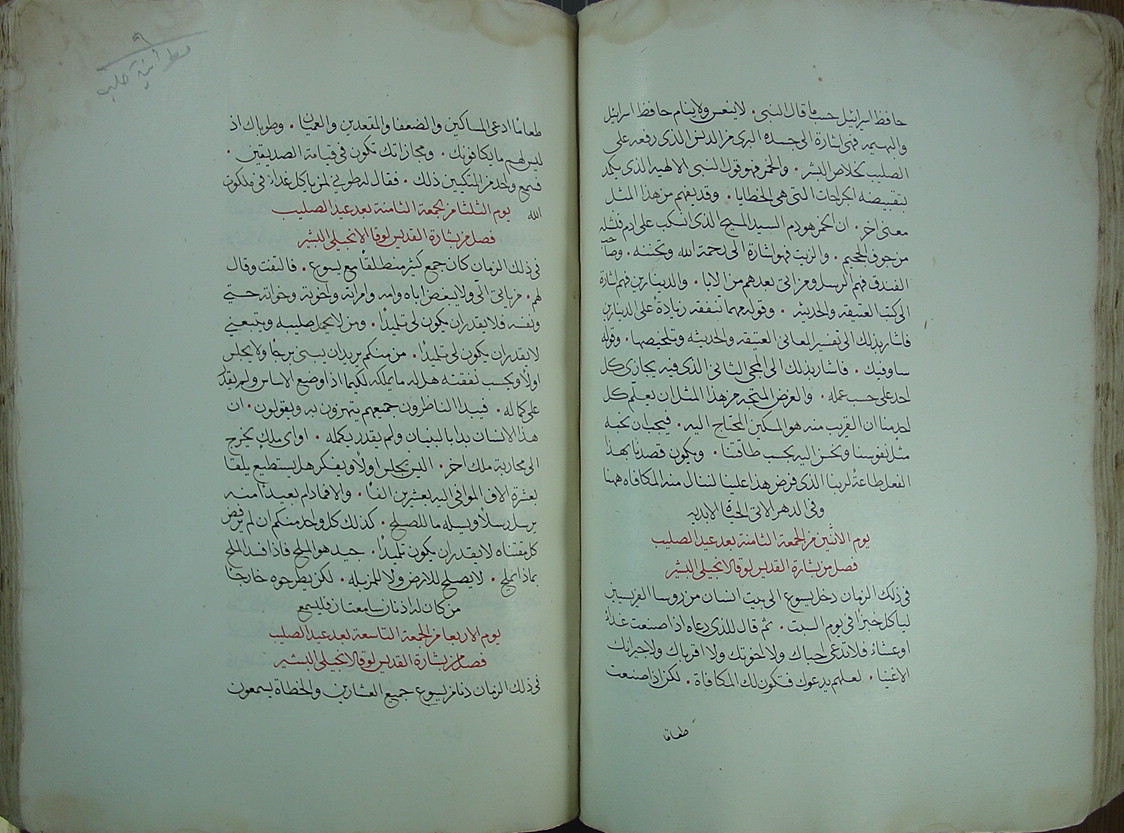 حافظ اسراييل حسب ما قال النبي . لا ينعس ولا ينام حافظ اسراييل
والبهيمه فهي اشارة الى جسده البري من الدنس الذي رفعه على
الصليب لخلاص البشر . والخمر فهو قول النبي الالهيه الذي يكمد
بتقبيضه الجراحات التي هي الخطايا . وقد يفهم من هذا المثل
معنى اخر . ان الخمر هو دم السيد المسيح الذي انسكب على ادم فنشله
من جوف الجحيم . والزيت فهو اشارة الى رحمة الله وتحننه . وصاحب
الفندق فهم الرسل ومن اتى بعدهم من الابا . والدينارين فهم اشارة
الى كتبنا العتيقه والحديثه . وقوله مهما تنفقه زيادة على الدينارين
فاشار بذلك الى تفسير المعاني العتيقه والحديثه وتلخيصها . وقوله
ساوفيك . فاشار بذلك الى المجي الثاني الذي فيه يجازي كل
احد على حسب عمله . والغرض المتجه من هذا المثل ان نعلم كل
احد منا ان القريب منه هو المسكين المحتاج اليه . فيجب ان نحبه
مثل نفوسنا ونحسن اليه بحسب طاقتنا . ويكون قصدنا بهذا
الفعل طاعة لربنا الذي فرض هذا علينا لننال منه المكافاه ههنا
وفي الدهر الاتي الحياة الابديه
يوم الاثنين من الجمعة الثامنة بعد عيد الصليب
فصل من بشارة القديس لوقا الانجيلي البشير
في ذلك الزمان دخل يسوع الى بيت انسان من روسا الفريسيين
لياكل خبزا في يوم السبت . ثم قال للذي دعاه اذا صنعت غداء
او عشاء فلا تدعي احباك ولا اخوتك ولا اقرباك ولا جيرانك
الاغنيا . لعلهم يدعوك فتكون لك المكافاة . لكن اذا صنعت
طعاما
٩
حلب
طعاما ادعي المساكين والضعفا والمقعدين والعميان . وطوباك اذ
ليس لهم ما يكافونك . ومجازاتك تكون في قيامة الصديقين .
فسمع واحد من المتكيين ذلك . فقال له طوبى لمن ياكل غداء في ملكوت
الله
يوم الثلثا من الجمعة الثامنة بعد عيد الصليب
فصل من بشارة القديس لوقا الانجيلي البشير
في ذلك الزمان كان جمع كثير منطلقا مع يسوع . فالتفت وقال
لهم . من ياتي الي ولا يبغض اباه وامه وامراته واخوته وخواته حتى
ونفسه فلا يقدر ان يكون لي تلميذا . ومن لا يحمل صليبه ويتبعني
لا يقدر ان يكون لي تلميذا . من منكم يريد ان يبني برجا ولا يجلس
اولا ويحسب نفقته هل له ما يكمله لكيما اذا وضع الاساس ولم يقدر
على كماله . فيبدا الناظرون جميعهم يتهزون به ويقولون . ان
هذا الانسان بدا بالبنيان ولم يقدر يكمله . او اي ملك يخرج
الى محاربة ملك اخر . اليس يجلس اولا ويفكر هل يستطيع يلقا
بعشرة الاف الموافي اليه بعشرين الفا . والا فما دام بعيدا منه
يرسل رسلا ويسله ما للصلح . كذلك كل واحد منكم ان لم يرفض
كل مقتناه لا يقدر ان يكون تلميذا . جيد هو الملح فاذا فسد الملح
بماذا يملح . لا يصلح للارض ولا للمزبله . لكن يطرحوه خارجا
من كان له اذنان سامعتان فليسمع
يوم الاربعا من الجمعة التاسعة بعد عيد الصليب
فصل من بشارة القديس لوقا الانجيلي البشير
في ذلك الزمان دنا من يسوع جميع العشارين والخطاة يسمعون